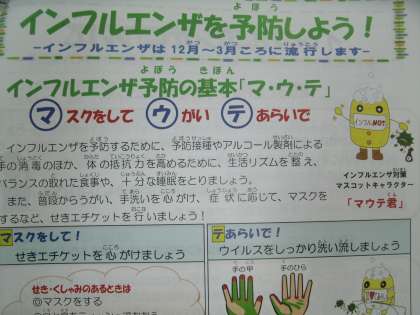 インフルエンザを予防しよう！
-インフルエンザは12月～3月ころに流行します-
インフルエンザ予防の基本「マ・ウ・テ」
マスクをして ウがい テあらいで
インフルエンザを予防するために、予防接種やアルコール製剤による
手の消毒のほか、体の抵抗力を高めるために、生活リズムを整え、
バランスの取れた食事や、十分な睡眠をとりましょう。
また、普段からうがい、手洗いを心がけ、症状に応じて、マスクを
するなど、せきエチケットを行いましょう！
インフルNOT
インフルエンザ対策
マスコットキャラクター
「マウテ君」
マスクをして！
せきエチケットを心がけましょう
せき・くしゃみのあるときは
◎マスクをする
テあらいで！
ウイルスをしっかり洗い流しましょう
手の甲 手のひら